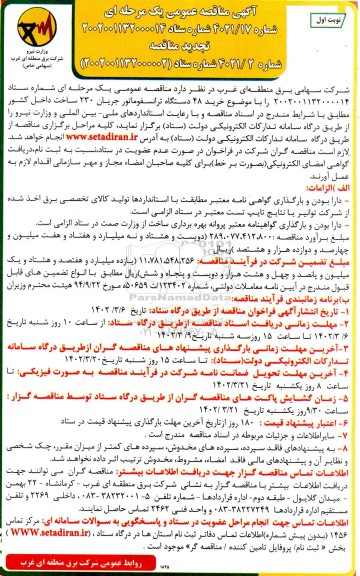 نوبت اول
آگهی مناقصه عمومی یک مرحله ای
شماره ۴۰۲۱/۱۷ شماره ستاد ۲۰۰۲۰۰۱۱۳۲۰۰۰۰۱۴
تجدید مناقصه
شماره ۴۰۲۱/۲ شماره ستاد (۲۰۰۲۰۰۱۱۳۲۰۰۰۰۰۲)
وزارت نیرو
شرکت برق منطقه ای غرب
(سهامی خاص)
شرکت سهامی برق منطقه‌ای غرب در نظر دارد مناقصه عمومی یک مرحله ای شماره ستاد
۲۰۰۲۰۰۱۱۳۲۰۰۰۰۱۴ را با موضوع خرید ۴۸ دستگاه ترانسفورماتور جریان ۲۳۰ ساخت داخل کشور
مطابق با شرایط مندرج در اسناد مناقصه و با رعایت استانداردهای ملی- بین المللی و وزارت نیرو را
از طریق درگاه سامانه تدارکات الکترونیکی دولت (ستاد) برگزار نماید، کلیه مراحل برگزاری مناقصه از
طریق درگاه سامانه تدارکات الکترونیکی دولت (ستاد) به آدرس www.setadiran.ir انجام خواهد شد.
لازم است مناقصه گران شرکت در فراخوان در صورت عدم عضویت در ستاد،نسبت به ثبت نام،دریافت
گواهی امضای الکترونیکی(بصورت بر خط)برای کلیه صاحبان امضاء مجاز و مهر سازمانی اقدام لازم به
عمل آورند.
الف )الزامات:
- دارا بودن و بارگذاری گواهی نامه معتبر مطابقت با استانداردها تولید کالای تخصصی برق اخذ شده
از شرکت توانیر یا نتایج تایپ تست معتبر در ستاد الزامی است.
- دارا بودن و بارگذاری گواهینامه معتبر پروانه بهره برداری ساخت از وزارت صمت در ستاد الزامی است.
مبلغ برآورد مناقصه :۲۸۹،۰۷۷،۴۱۲،۸۰۰ (دویست و هشتاد و نه میلیارد و هفتاد و هفت میلیون و
چهارصد و دوازده هزار و هشتصد )ریال
مبلغ تضمین شرکت در فرآیند مناقصه: ۱۱،۷۸۱،۵۴۸،۲۵۶ (یازده میلیارد و هفتصد و هشتاد و یک
میلیون و پانصد و چهل و هشت هزار و دویست و پنجاه و شش)ریال مطابق با انواع تضمین های قابل
قبول مندرج در آیین نامه معاملات دولتی، شماره ۱۲۳۴۰۲/ت۵۰۶۵۹ ه مورخ ۹۴/۹/۲۲ هیئت محترم وزیران
ب)برنامه زمانبندی فرآیند مناقصه:
۱- تاریخ انتشار آگهی فراخوان مناقصه از طریق درگاه ستاد: تاریخ ۱۴۰۲/۳/۶
۲- مهلت زمانی دریافت اسناد مناقصه ازطریق درگاه ستاد: از ساعت ۱۰ روز شنبه تاریخ
۱۴۰۲/۳/۶ تا ساعت ۱۵ روز سه شنبه تاریخ ۱۴۰۲/۳/۹
۳- آخرین مهلت زمانی بارگذاری پیشنهاد های مناقصه گران ازطریق درگاه سامانه
تدارکات الکترونیکی دولت(ستاد): تا ساعت ۱۵ روز شنبه تاریخ ۱۴۰۲/۳/۲۰
۴- آخرین مهلت تحویل ضمانت نامه شرکت در فرآیند مناقصه به صورت فیزیکی: تا
ساعت ۸ روز یکشنبه تاریخ ۱۴۰۲/۳/۲۱
۵- زمان گشایش پاکت های مناقصه گران از طریق درگاه ستاد توسط مناقصه گزار :
ساعت ۹/۳۰روز یکشنبه تاریخ ۱۴۰۲/۳/۲۱
۶- اعتبار پیشنهاد قیمت : ۱۸۰ روز ازتاریخ آخرین مهلت بارگذاری پیشنهاد قیمت در ستاد
۷- سایراطلاعات و جزئیات مربوطه در اسناد مناقصه مندرج است .
۸- به پیشنهادهای فاقد سپرده، سپرده های مخدوش، سپرده های کمتر از میزان مقرر، چک شخصی
و نظایر آن و پیشنهادهای مالی فاقد امضاء، مشروط، مخدوش ترتیب اثر داده نخواهد شد.
اطلاعات تماس مناقصه گزار جهت دریافت اطلاعات بیشتر: مناقصه گران می توانند جهت
دریافت اطلاعات بیشتر با مناقصه گزار به نشانی شرکت برق منطقه ای غرب - کرمانشاه - ۲۲ بهمن
- میدان گلایول - طبقه دوم - اداره قراردادها با شماره تلفن ۵-۳۸۲۳۲۰۰۱-۰۸۳ داخلی ۲۲۶۹ و تلفن
مستقیم اداره قراردادها ۳۸۲۲۷۲۴۹-۰۸۳ و واحد فنی ۲۴۶۲ تماس حاصل نمایند.
اطلاعات تماس جهت انجام مراحل عضویت در ستاد و پاسخگویی به سوالات سامانه ای: مرکز تماس
۱۴۵۶ (بدون پیش شماره)اطلاعات تماس دفاتر ثبت نام استان ها در درگاه ستاد ، (www.setadiran.ir)
بخش « ثبت نام/ پروفایل تامین کننده / مناقصه گر» موجود است .
روابط عمومی شرکت برق منطقه ای غرب